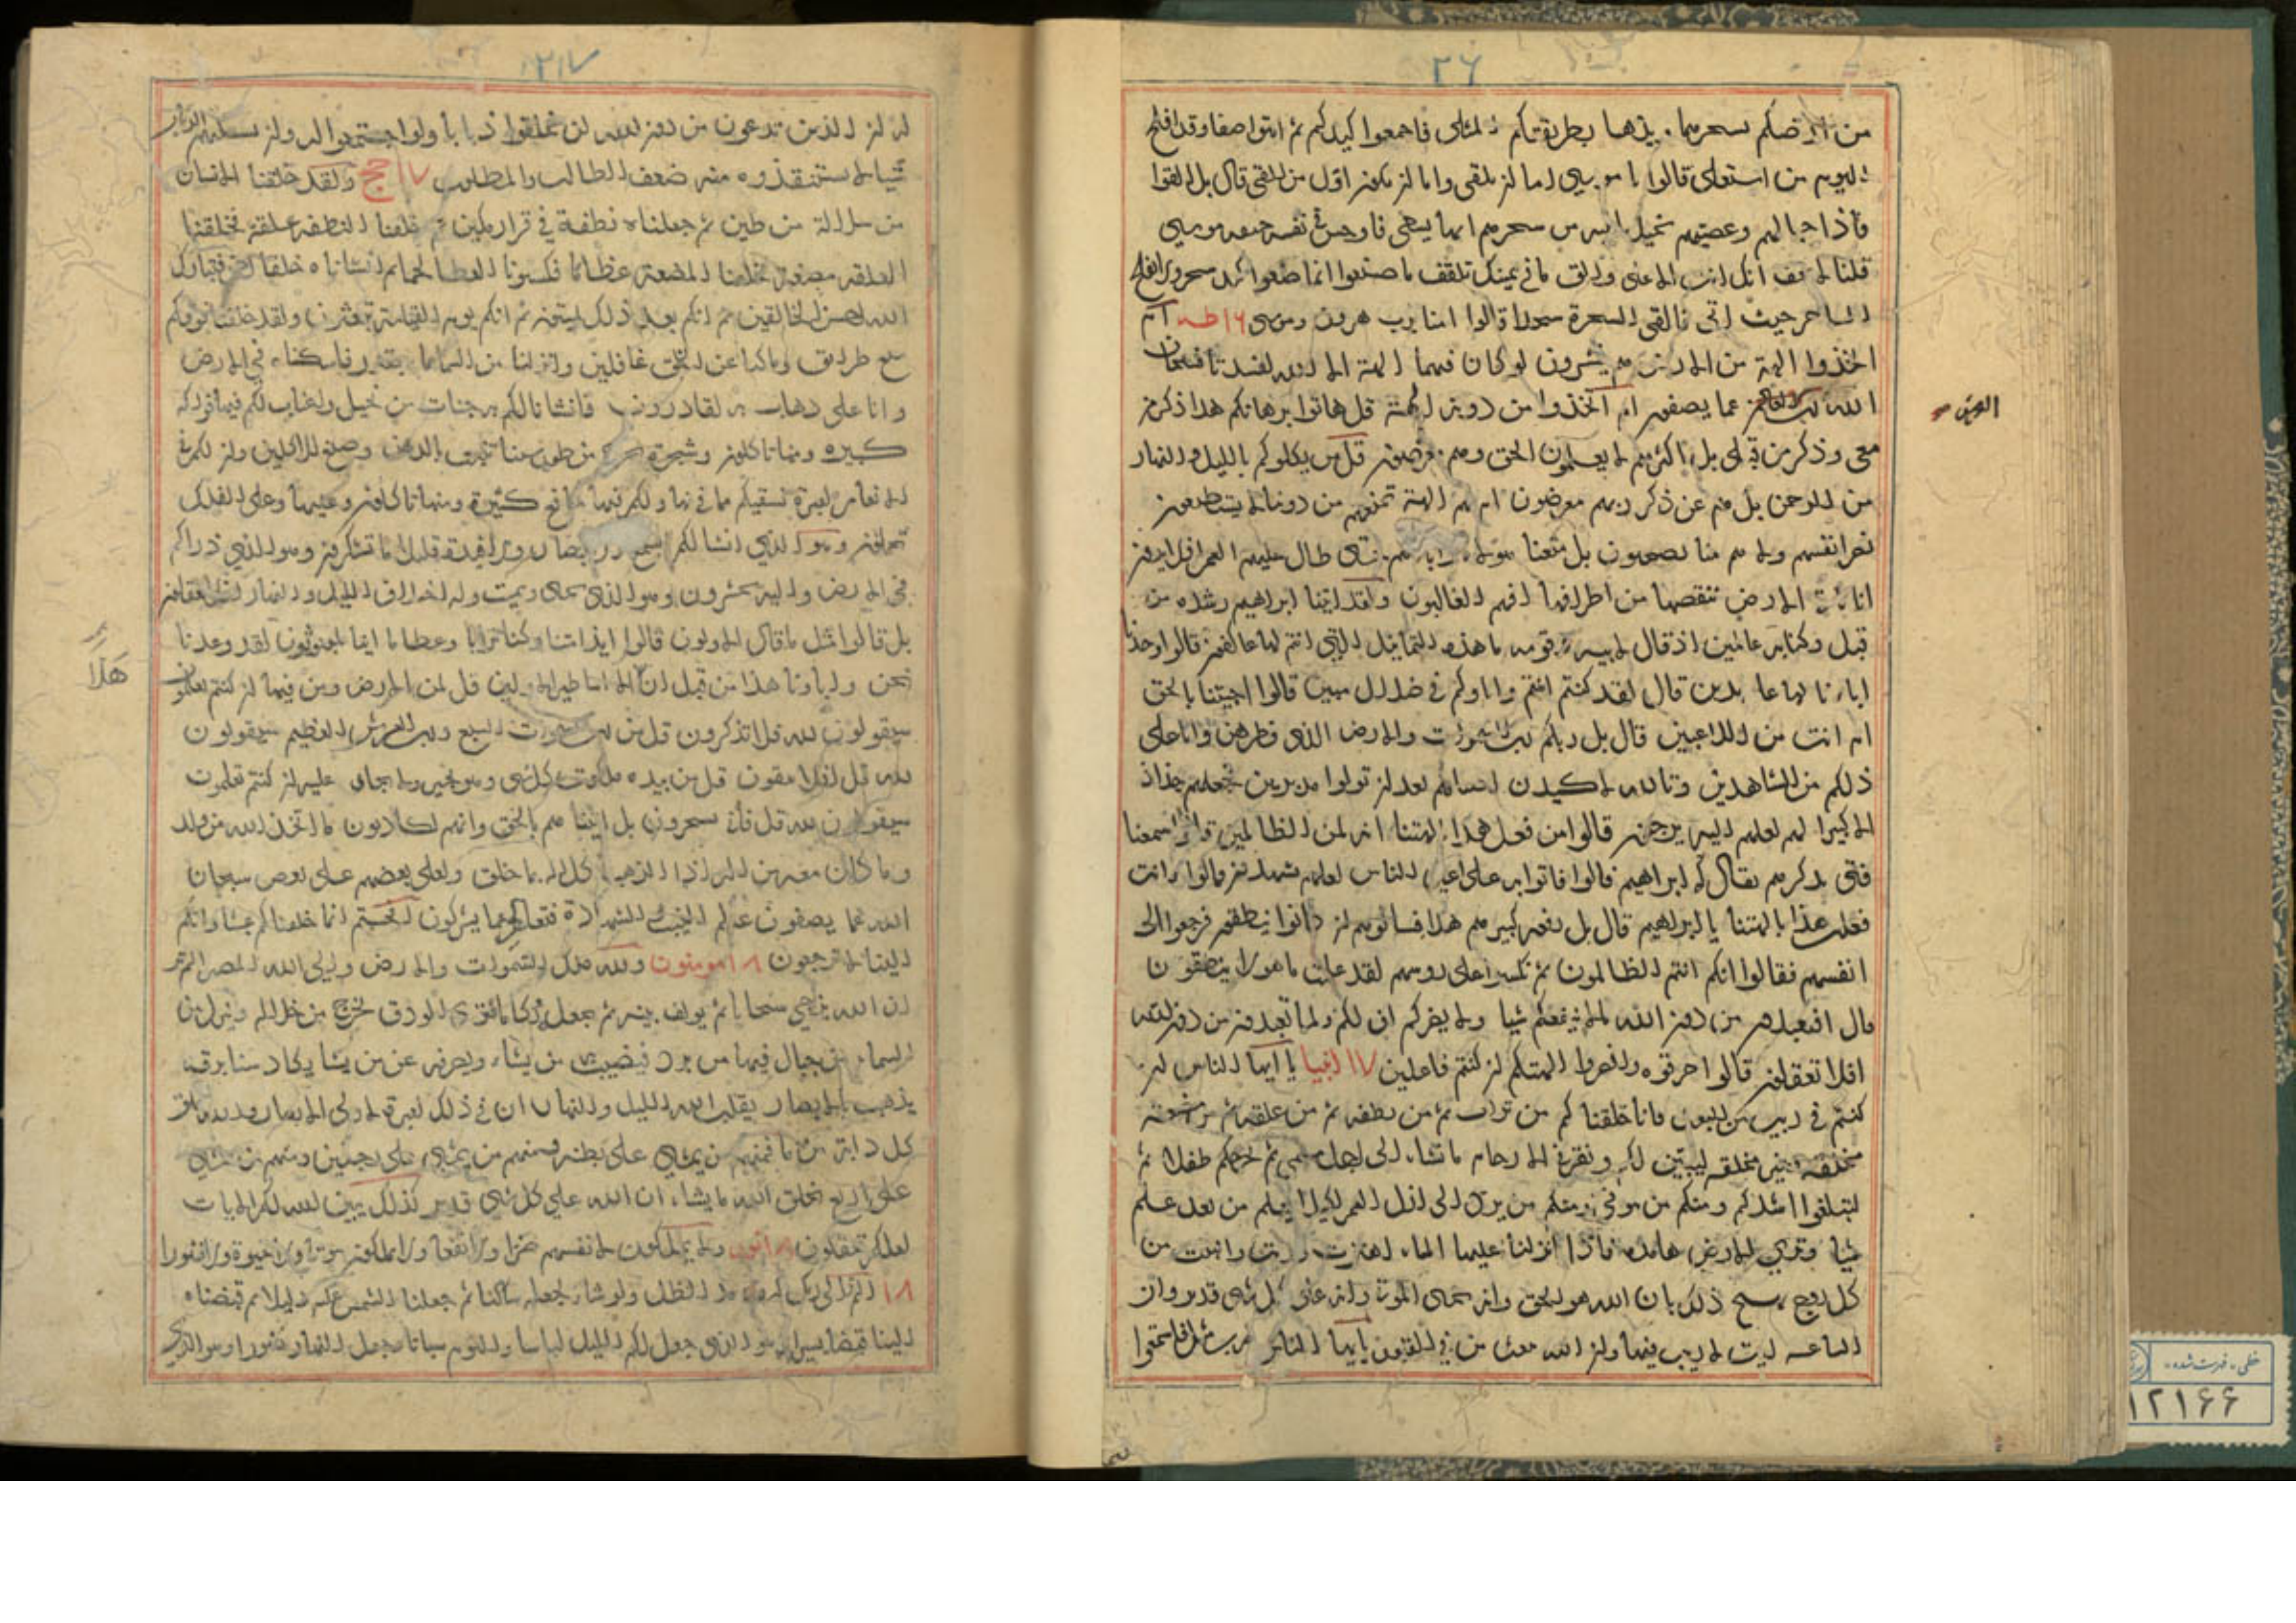 ٢٦
من ارضكم بسحرهما ويذهبا بطريقتكم المثلى فاجمعوا كيدكم ثم ائتوا صفا وقد افلح
اليوم من استعلى قالوا يا موسى اما ان تلقى واما ان نكون اول من القى قال بل القوا
فاذا حبالهم وعصيهم يخيل اليه من سحرهم انها تسعى فاوجس في نفسه خيفه موسى
قلنا لا تخف انك انت الاعلى والق ما في يمينك تلقف ما صنعوا انما صنعوا كيد سحر ولا يفلح
الساحر حيث اتى فالقى السحرة سجدا قالوا امنا برب هرون وموسى ١٦ طه ام
اتخذوا الهة من الارض هم ينشرون لو كان فيهما الهة الا الله لفسدتا فسبحان
الله رب العرش عما يصفون ام اتخذوا من دونه الهة قل هاتوا برهانكم هذا ذكر من
العرش
معى وذكر من قبلى بل اكثرهم لا يعلمون الحق وهم معرضون قل من يكلوكم بالليل والنهار
من الرحمن بل هم عن ذكر ربهم معرضون ام لهم الهة تمنعهم من دوننا لا يستطيعون
نصر انفسهم ولا هم منا يصحبون بل متعنا هولاء واباءهم حتى طال عليهم العمر افلا يرون
انا ناتى الارض ننقصها من اطرافها افهم الغالبون ولقد اتينا ابراهيم رشده من
قبل وكنا به عالمين اذ قال لابيه وقومه ما هذه التماثيل التي انتم لها عاكفون قالوا وجدنا
اباءنا لها عابدين قال لقد كنتم انتم واباوكم في ضلال مبين قالوا اجئتنا بالحق
ام انت من اللاعبين قال بل ربكم رب السموات والارض الذى فطرهن وانا على
ذلكم من الشاهدين وتالله لاكيدن اصنامكم بعد ان تولوا مدبرين فجعلهم جذاذ
الا كبيرا لهم لعلهم اليه يرجعون قالوا من فعل هذا بالهتنا انه لمن الظالمين قالوا سمعنا
فتى يذكرهم يقال له ابراهيم قالوا فاتوا به على اعين الناس لعلهم يشهدون قالوا اانت
فعلت هذا بالهتنا يا ابراهيم قال بل فعله كبيرهم هذا فسالوهم ان كانوا ينطقون فرجعوا الى
انفسهم فقالوا انكم انتم الظالمون ثم نكسوا على روسهم لقد علمت ما هولاء ينطقون
قال افتعبدون من دون الله ما لا ينفعكم شيا ولا يضركم اف لكم ولما تعبدون من دون الله
افلا تعقلون قالوا حرقوه وانصروا الهتكم ان كنتم فاعلين ١٧ انبيا يا ايها الناس ان
كنتم في ريب من البعث فانا خلقناكم من تراب ثم من نطفه ثم من علقه ثم من مضغة
مخلقه وغير مخلقه ليبين لكم ونقر في الارحام ما نشاء الى اجل مسمى ثم نخرجكم طفلا ثم
لتبلغوا اشدكم ومنكم من يتوفى ومنكم من يرد الى ارذل العمر لكيلا يعلم من بعد علم
شيا وترى الارض هامده فاذا انزلنا عليها الماء اهتزت وربت وانبتت من
كل زوج بهيج ذلك بان الله هو الحق وانه يحيى الموتى وانه على كل شى قدير وان
الساعه اتية لا ريب فيها وان الله يبعث من في القبور يا ايها الناس ضرب مثل فاستمعوا
٢١٧
له ان الذين تدعون من دون الله لن يخلقوا ذبابا ولو اجتمعوا له وان يسلبهم الذباب
شيا لا يستنقذوه منه ضعف الطالب والمطلوب ١٧ حج ولقد خلقنا الانسان
من سلالة من طين ثم جعلناه نطفة في قرار مكين ثم خلقنا النطفه علقه فخلقنا
العلقه مضغة فخلقنا المضغة عظاما فكسونا العظام لحما ثم انشاناه خلقا اخر فتبارك
الله احسن الخالقين ثم انكم بعد ذلك لميتون ثم انكم يوم القيامة تبعثون ولقد خلقنا فوقكم
سبع طرايق وما كنا عن الخلق غافلين وانزلنا من السماء ماء بقدر فاسكناه في الارض
وانا على ذهاب به لقادرون فانشانا لكم به جنات من نخيل واعناب لكم فيها فواكه
كثيره ومنها تاكلون وشجرة تخرج من طور سينا تنبت بالدهن وصبغ للاكلين وان لكم في
الانعام لعبرة نسقيكم مما في بطونها ولكم فيها منافع كثيرة ومنها تاكلون وعليها وعلى الفلك
تحملون وهو الذي انشا لكم السمع والابصار والافئدة قليلا ما تشكرون وهو الذي ذراكم
في الارض واليه تحشرون وهو الذى يحيى ويميت وله اختلاف الليل والنهار افلا تعقلون
بل قالوا مثل ما قال الاولون قالوا ايذا متنا وكنا ترابا وعظاما اينا لمبعوثون لقد وعدنا
نحن واباونا هذا من قبل ان هذا الا اساطير الاولين قل لمن الارض ومن فيها ان كنتم تعلمون
سيقولون لله قل افلا تذكرون قل من رب السموات السبع ورب العرش العظيم سيقولون
لله قل افلا تتقون قل من بيده ملكوت كل شى وهو يجير ولا يجار عليه ان كنتم تعلمون
سيقولون لله قل فانى تسحرون بل اتيناهم بالحق وانهم لكاذبون ما اتخذ الله من ولد
وما كان معه من اله اذا لذهب كل اله بما خلق ولعلى بعضهم على بعض سبحان
الله عما يصفون عالم الغيب والشهادة فتعالى عما يشركون افحسبتم انما خلقناكم عبثا وانكم
الينا لا ترجعون ١٨ مومنون ولله ملك السموات والارض والى الله المصير الم تر
ان الله يزجي سحابا ثم يولف بينه ثم يجعله ركاما فترى الودق يخرج من خلاله وينزل من
السماء من جبال فيها من برد فيصيب به من يشاء ويصرفه عن من يشا يكاد سنا برقه
يذهب بالابصار يقلب الله الليل والنهار ان في ذلك لعبرة لاولى الابصار والله خلق
كل دابة من ماء فمنهم من يمشي على بطنه ومنهم من يمشي على رجلين ومنهم من يمشي
على اربع يخلق الله ما يشاء ان الله على كل شي قدير كذلك يبين الله لكم الايات
لعلكم تعقلون ١٨ نور ولا يملكون لانفسهم ضرا ولا نفعا ولا يملكون موتا ولا حيوة ولا نشورا
١٨ الم تر الى ربك كيف مد الظل ولو شاء لجعله ساكنا ثم جعلنا الشمس عليه دليلا ثم قبضناه
الينا قبضا يسيرا وهو الذى جعل لكم الليل لباسا والنوم سباتا وجعل النهار نشورا وهو الذى
خطی - فهرست شده
١٢١٦٦